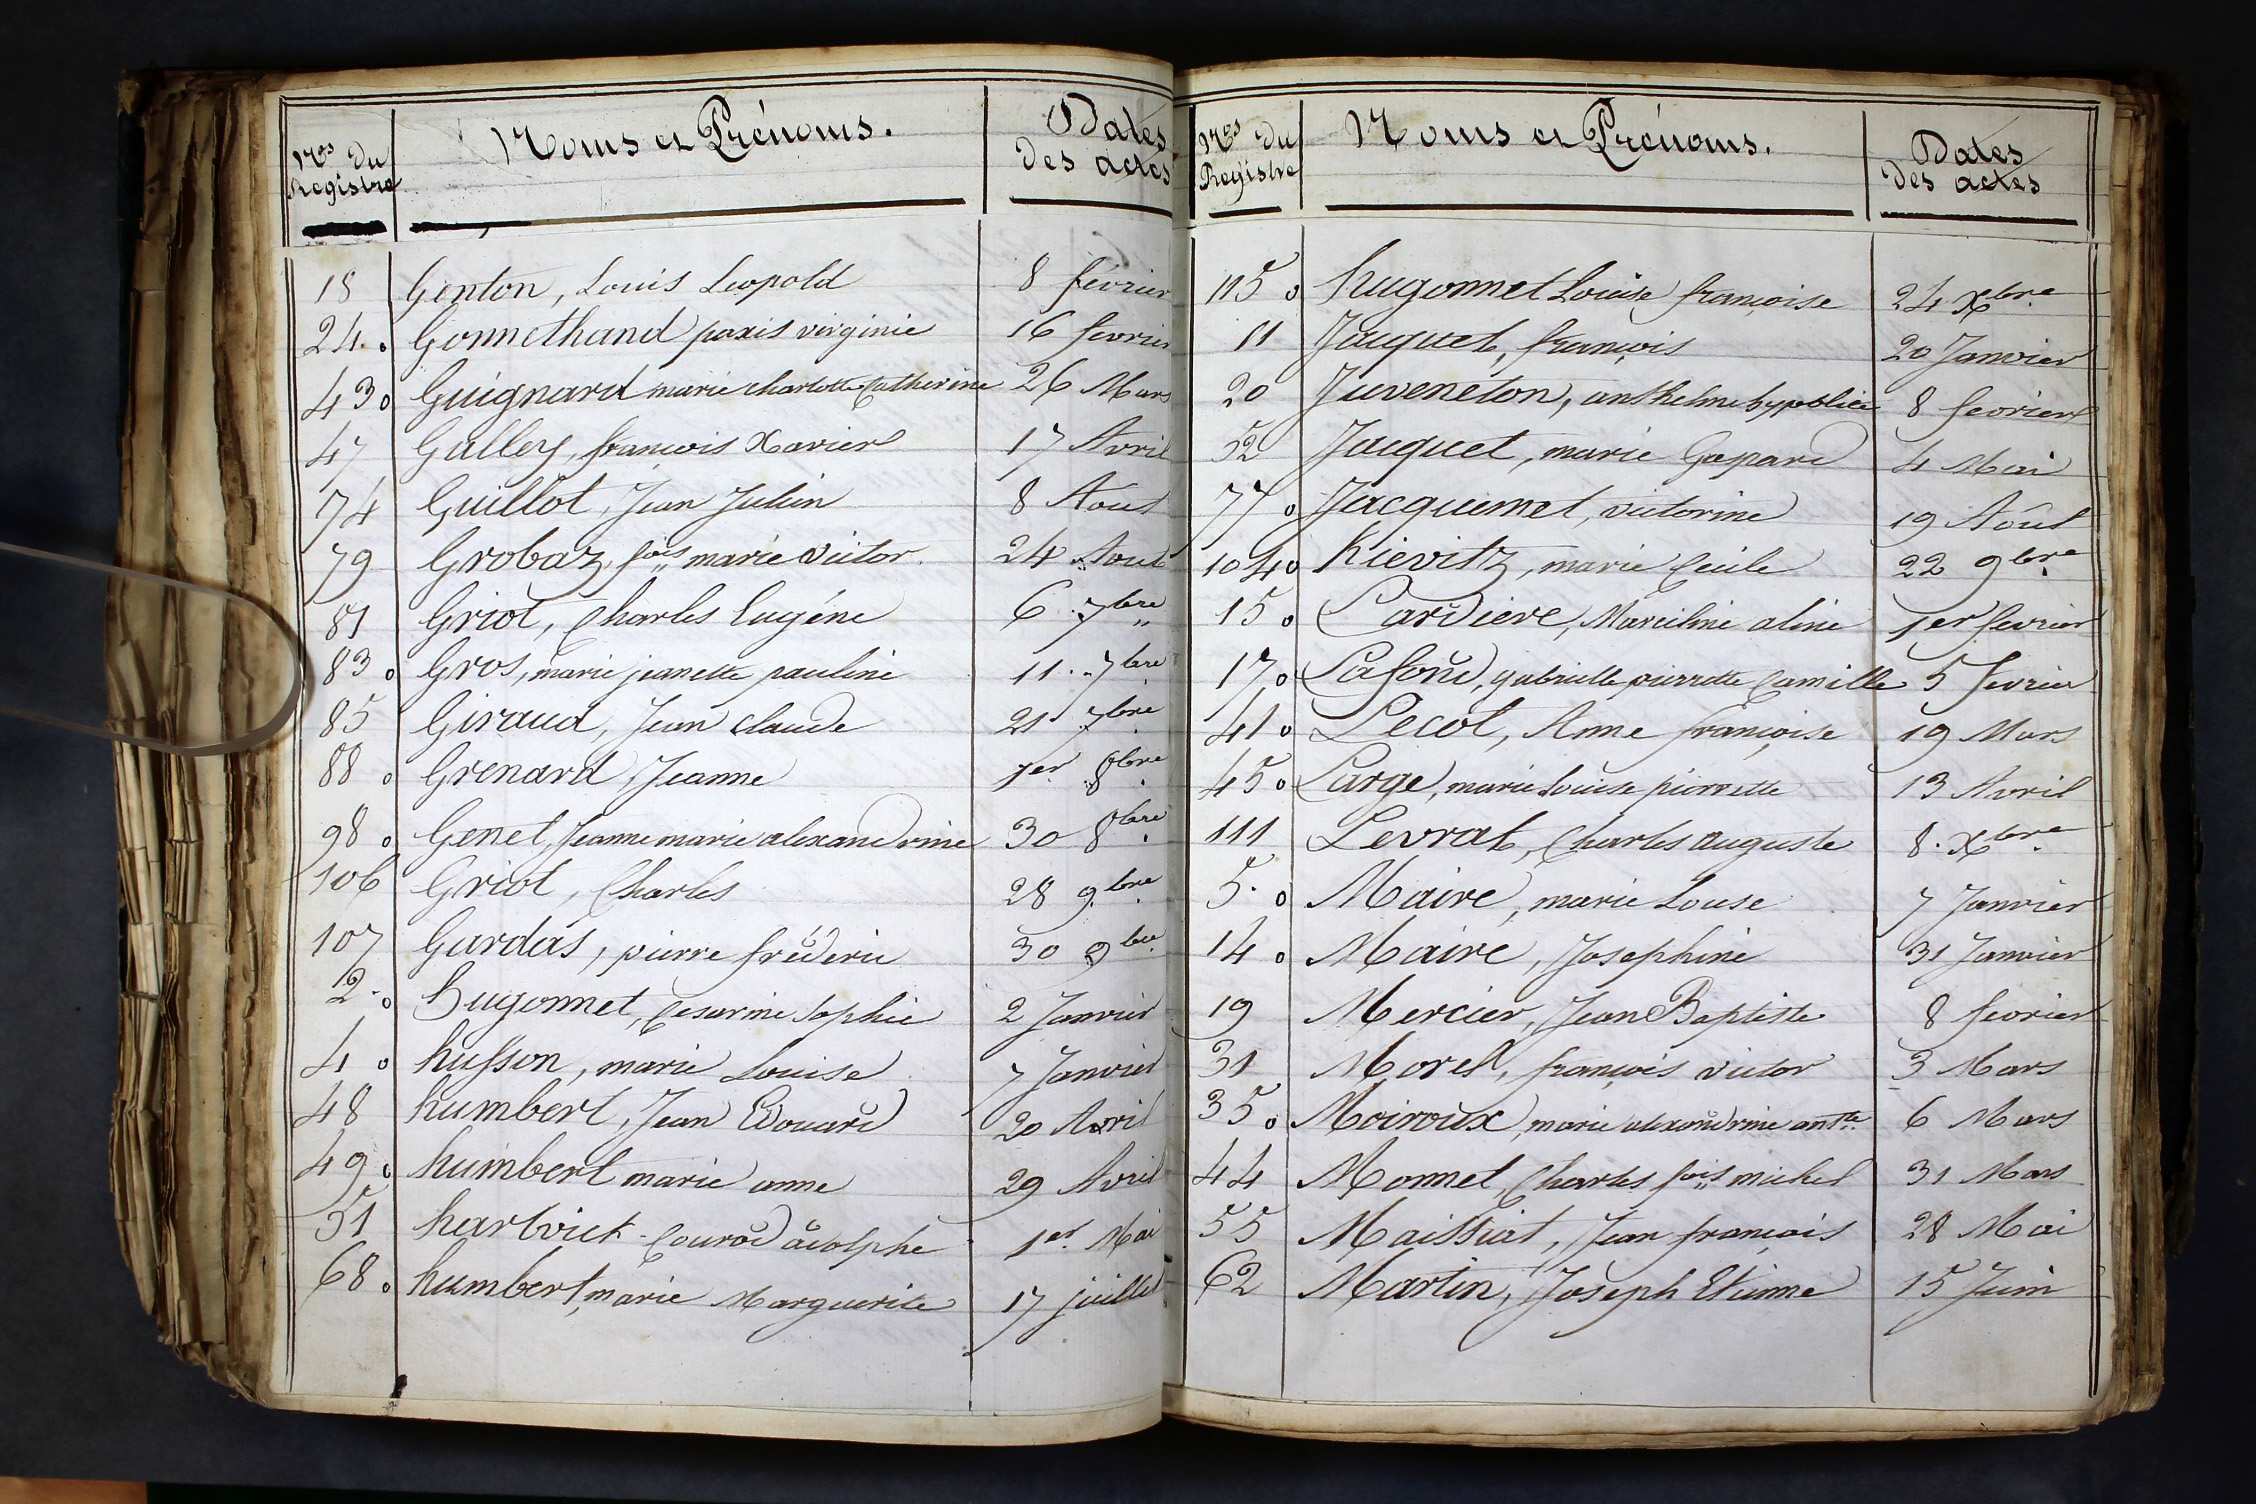 Nos du Registre Noms et Prénoms. Dates des actes
18 Genton, Louis Leopold 8 février
24. o Gonnethand paxis virginie 16 fevrier
43 o Guignard marie charlotte Catherine 26 Mars
47 Galley, françois Xavier 17 Avril
74 Guillot, Jean Julien 8 Aout
79 Grobaz, fois marie Victor. 24 Aout
81 Griot, Charles Eugéne 6 7bre
83 o Gros, marie jeanette pauline 11. 7bre
85 Giraud, Jean claude 21 7bre
88 o Grenard, Jeanne 1er 8bre
98 o Genet, Jeanne marie alexandrine 30 8bre
106 Griot, Charles 28 9bre
107 Gardas, pierre fréderic 30 9bre
2. o Hugonnet, Cesarine Sophie 2 Janvier
4 o husson, marie Louise 7 Janvier
48 humbert, Jean Edouard 20 Avril
49. o humbert marie anne 29 Avril
51 hartvick - Courad adolphe 1er Mai
68. o humbert, marie Marguerite 17 juillet
Nos du Registre Noms et Prénoms. Dates des actes
115 o hugonnet Louise françoise 24 Xbre
11 Jacquet, françois 20 Janvier
20 Juveneton, anthelme hypolite 8 fevrier
52 Jacquet, marie Gaspard 4 Mai
77 o Jacquemet, victorine 19 Août
104 o Kievitz, marie Cecile 22 9bre
15 o Lardiere, Marceline aline 1er fevrier
17 o Lafond, gabrielle pierrette Camille 5 fevrier
41 o Lecot, Anne françoise 19 Mars
45 o Large, marie Louise pierrette 13 Avril
111 Levrat, Charles auguste 8. Xbre
5. o Maire, marie Louse 7 Janvier
14 o Maire, Josephine 31 Janvier
19 Mercier, Jean Baptiste 8 fevrier
31 Morel, françois victor 3 Mars
35 o Moiroux, marie alexandrine antte 6 Mars
44 Monnet, Charles fois michel 31 Mars
55 Maissiat, Jean françois 28 Mai
62 Martin, Joseph Etienne 15 Juin